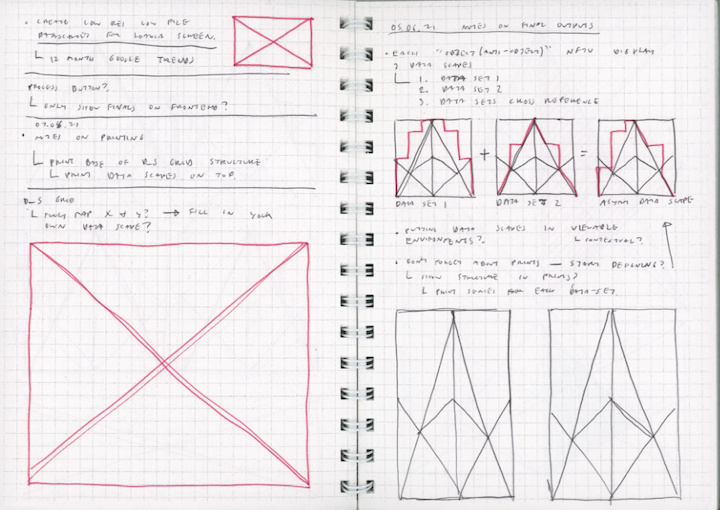 • CREATE LOW RES LOW FILE
DATASCAPES FOR LOADING SCREEN.
└ 12 MONTH GOOGLE TRENDS
PROCESS BUTTON?
└ ONLY SHOW FINALS ON FRONTEND?
07.06.21
• NOTES ON PRINTING
└ PRINT BASE OF R_S GRID STRUCTURE
└ PRINT DATA SCAPES ON TOP
R_S GRID
└ FULLY MAP X & Y? → FILL IN YOUR
OWN DATA SCAPE?
05.06.21 NOTES ON FINAL OUTPUTS
• EACH "OBJECT (ANTI-OBJECT)" NEED DISPLAY
3 DATA SCAPES
└ 1. DATA SET 1
2. DATA SET 2
3. DATA SETS CROSS REFERENCE
+ =
DATA SET 1 DATA SET 2 ASYM DATA SCAPE
• PUTTING DATA SCAPES IN VIEWABLE
ENVIRONMENTS? └ CONTEXTUAL?
• DON'T FORGET ABOUT PRINTS — START DESIGNING?
└ SHOW STRUCTURE IN PRINTS?
└ PRINT SERIES FOR EACH DATA-SET.